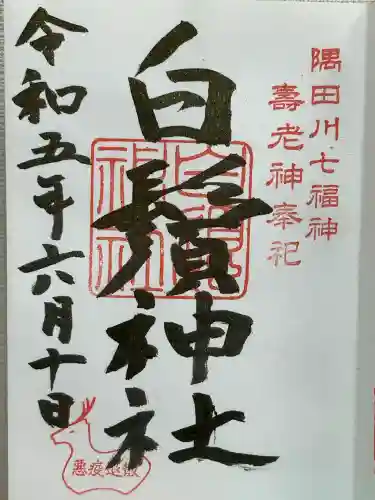 隅田川七福神
壽老神奉祀
白鬚神社
令和五年六月十日
白鬚神社